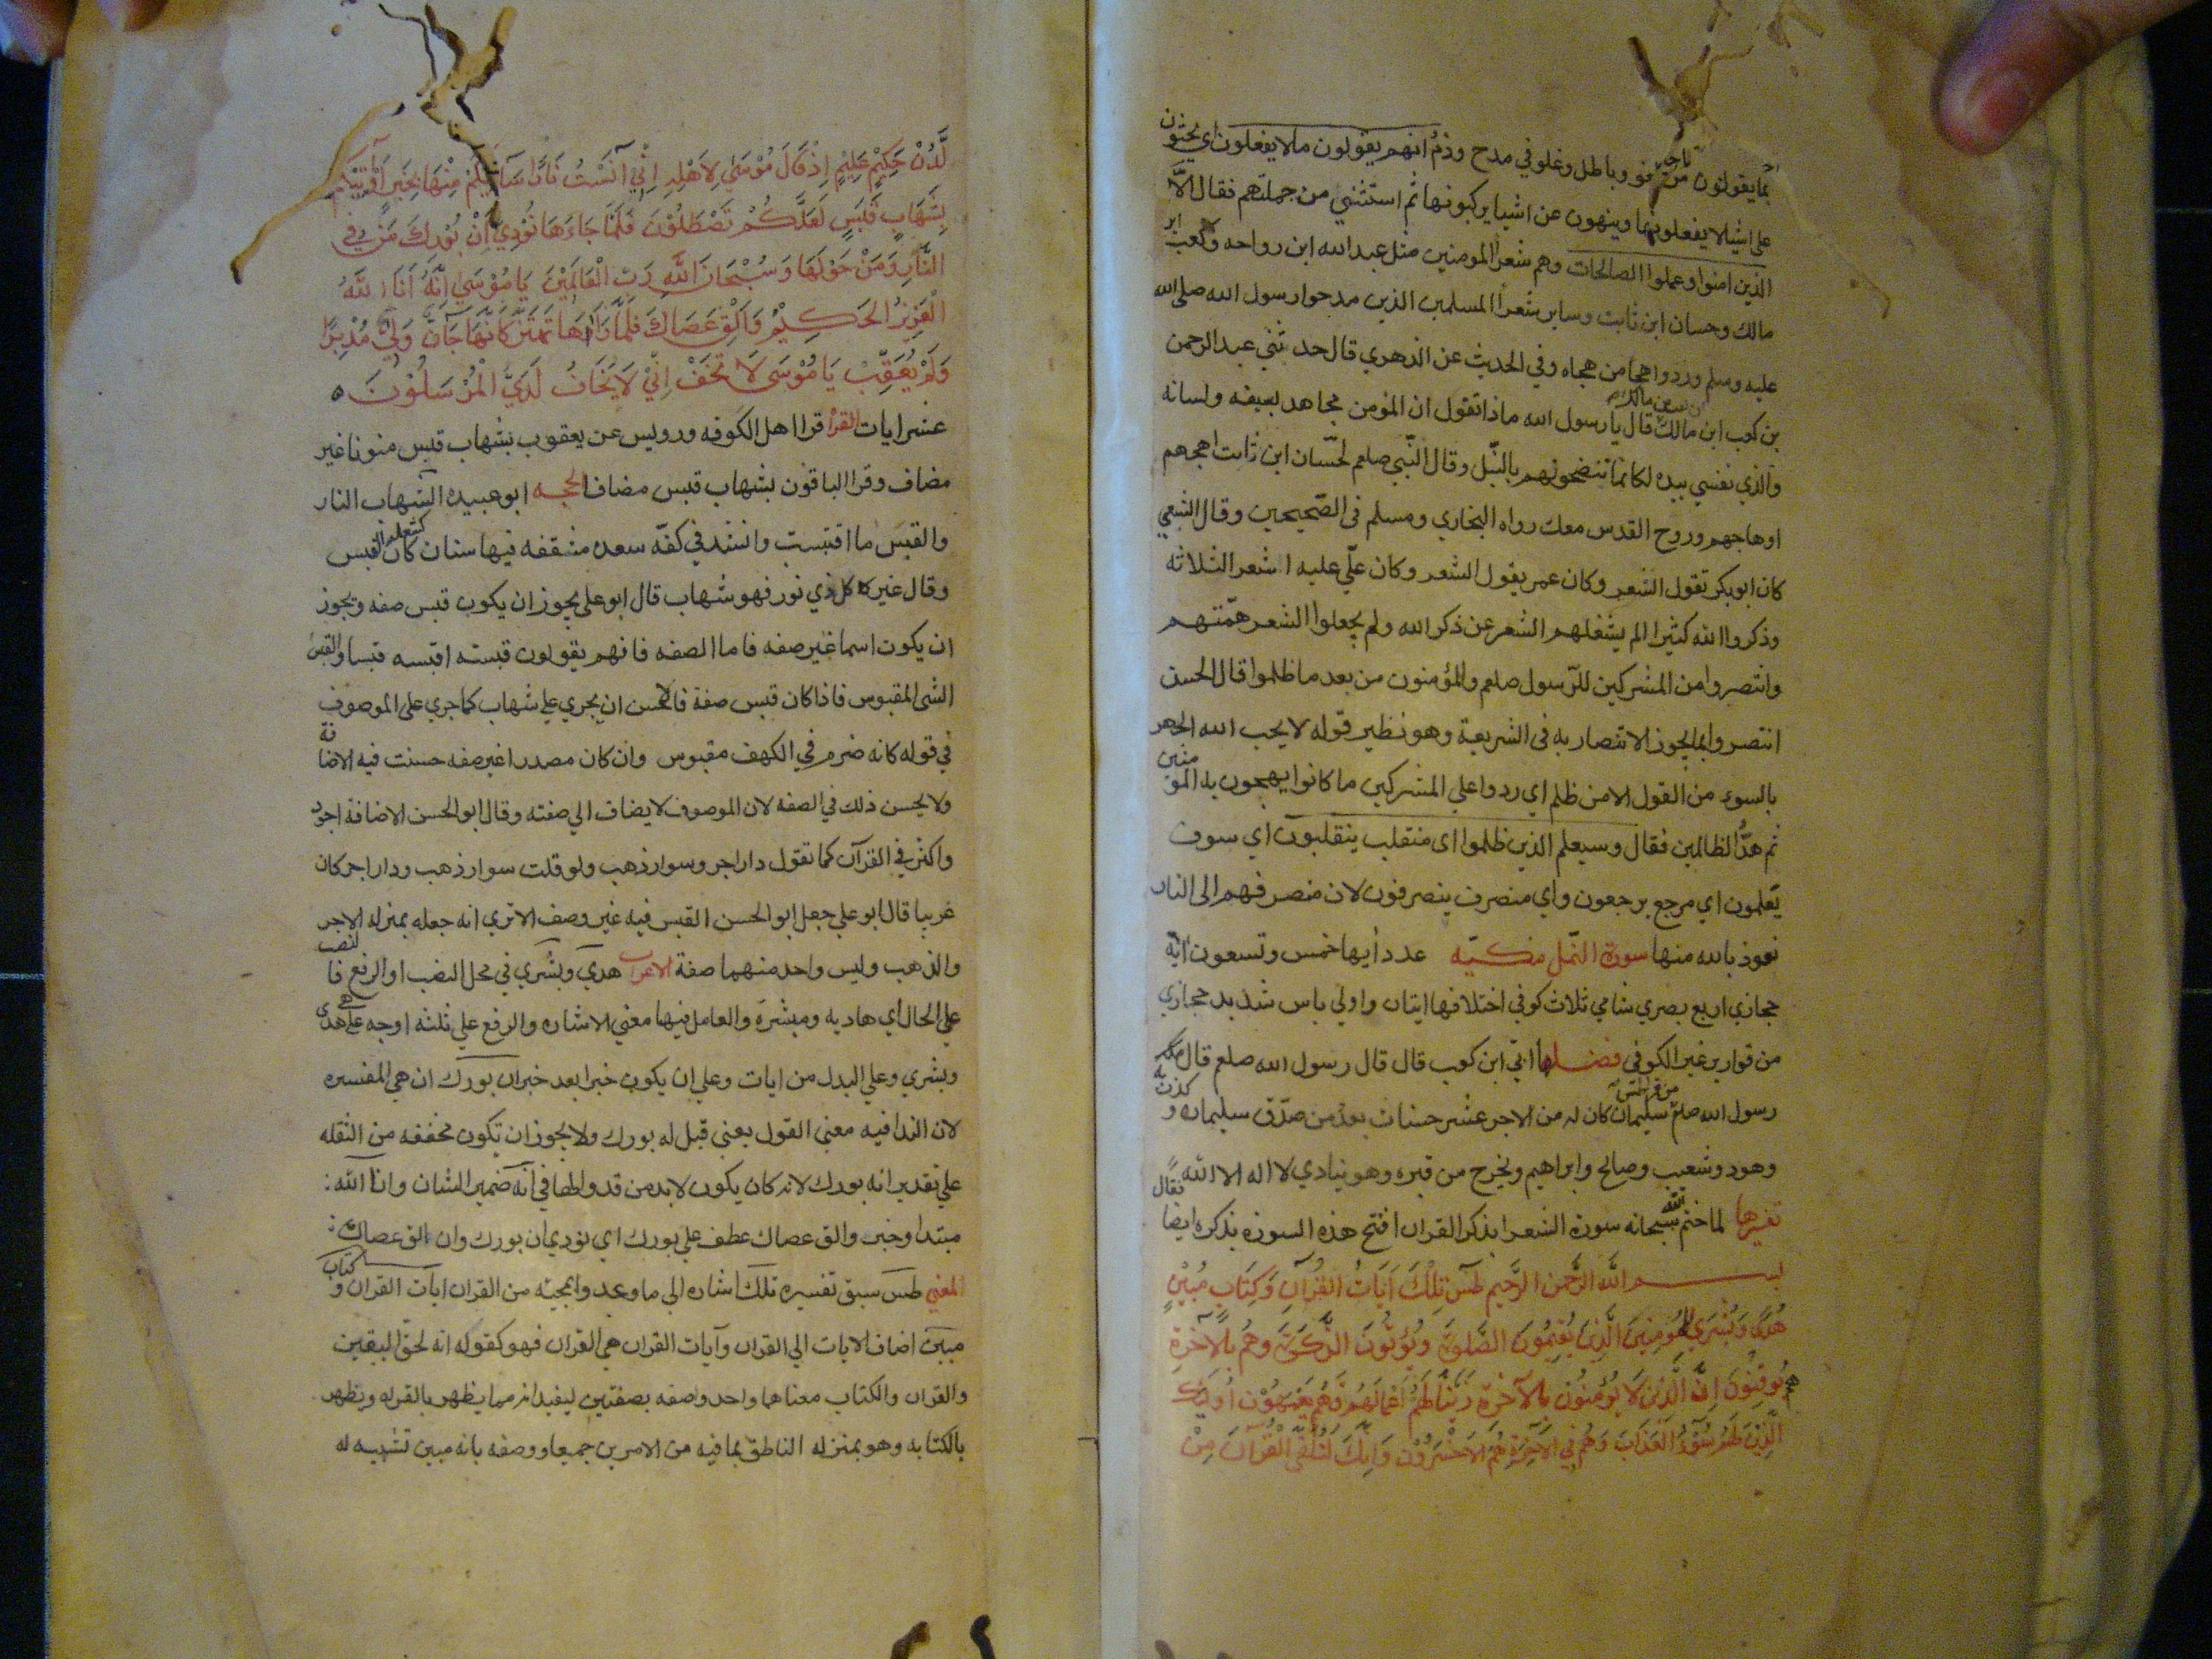 بما يقولون من لغو وباطل وغلو في مدح وذم انهم يقولون مالا يفعلون اي يحثون
على اشيا لا يفعلونها وينهون عن اشيا يركبونها ثم استثني من جملتهم فقال الا
الذين امنوا وعملوا الصالحات وهم شعرا المومنين مثل عبد الله ابن رواحه وكعب ابن
مالك وحسان ابن ثابت وساير شعرا المسلمين الذين مدحوا رسول الله صلى الله
عليه وسلم وردوا هجا من هجاه وفي الحديث عن الزهري قال حدثني عبد الرحمن
بن كعب ابن مالك قال يا رسول الله ماذا تقول ان المؤمن مجاهد بسيفه ولسانه
والذي نفسي بيده لكانما تنضحونهم بالنبل وقال النبي صلعم لحسان ابن ثابت اهجهم
اوهاجهم وروح القدس معك رواه البخاري ومسلم في الصحيحين وقال الشعبي
كان ابوبكر يقول الشعر وكان عمر يقول الشعر وكان علي عليه اشعر الثلاثه
وذكروا الله كثيرا لم يشغلهم الشعر عن ذكر الله ولم يجعلوا الشعر همتهم
وانتصروا من المشركين للرسول صلعم والمؤمنون من بعد ما ظلموا قال الحسن
انتصروا بما يجوز الانتصار به في الشريعة وهو نظير قوله لا يحب الله الجهر
بالسوء من القول الا من ظلم اي ردوا علي المشركين ما كانوا يهجون به المؤمنين
ثم هدد الظالمين فقال وسيعلم الذين ظلموا اى منقلب ينقلبون اي سوف
يعلمون اي مرجع يرجعون واي منصرف ينصرفون لان منصرفهم الى النار
نعوذ بالله منها سورة النمل مكيه عدد أيها خمس وتسعون آية
حجازي اربع بصري شامي ثلاث كوفي اختلافها ايتان واولي باس شديد حجازي
من قوارير غير الكوفي فضلها ابي ابن كعب قال قال رسول الله صلعم قال
رسول الله صلعم من قرا طس سليمان كان له من الاجر عشر حسنات بعدد من صدق سليمان وكذب به
وهود وشعيب وصالح وابراهيم ويخرج من قبره وهو ينادي لا اله الا الله
تفسيرها لما ختم الله سبحانه سورة الشعرا بذكر القران افتتح هذه السورة بذكره ايضا فقال
بسم الله الرحمن الرحيم طس تلك آيات القرآن وكتاب مبين
هدى وبشرى للمومنين الذين يقيمون الصلوة ويؤتون الزكوة وهم بالآخرة
هم يوقنون ان الذين لا يؤمنون بالآخرة زينا لهم اعمالهم فهم يعمهون اوليك
الذين لهم سوء العذاب وهم في الآخرة هم الاخسرون وانك لتلقى القرآن من
لدن حكيم عليم اذ قال موسى لاهله اني آنست نارا سآتيكم منها بخبر او آتيكم
بشهاب قبس لعلكم تصطلون فلما جاءها نودي ان بورك من في
النار ومن حولها وسبحان الله رب العالمين يا موسى انه انا الله
العزيز الحكيم والق عصاك فلما رآها تهتز كانها جان ولى مدبرا
ولم يعقب يا موسى لا تخف اني لا يخاف لدي المرسلون
عشر ايات القرأ قرا اهل الكوفه ورويس عن يعقوب بشهاب قبس منونا غير
مضاف وقرا الباقون بشهاب قبس مضاف الحجه ابو عبيده الشهاب النار
والقبس ما اقتبست وانشد في كفه سعده مثقفه فيها سنان كشعلة القبس
وقال غيره كل ذي نور فهو شهاب قال ابو علي يجوز ان يكون قبس صفه ويجوز
ان يكون اسما غير صفه فاما الصفه فانهم يقولون قبسته اقبسه قبسا والقبس
الشى المقبوس فاذا كان قبس صفة فالاحسن ان يجري علي شهاب كما جري على الموصوف
في قوله كانه ضرم في الكهف مقبوس وان كان مصدرا غير صفه حسنت فيه الاضافة
ولا يحسن ذلك في الصفه لان الموصوف لا يضاف الي صفته وقال ابو الحسن الاضافة اجود
واكثر في القرآن كما تقول دار اجر وسوار ذهب ولو قلت سوار ذهب ودار اجر كان
غريبا قال ابو علي جعل ابو الحسن القبس فيه غير وصف الا تري انه جعله بمنزله الاجر
والذهب وليس واحد منهما صفة الاعراب هدي وبشري في محل النصب او الرفع فالنصب
علي الحال أي هاديه ومبشرة والعامل فيها معني الاشاره والرفع علي ثلثه اوجه علي هي هدى
وبشري وعلي البدل من ايات وعلي ان يكون خبرا بعد خبر ان بورك ان هي المفسره
لان الندا فيه معني القول يعني قيل له بورك ولا يجوز ان تكون مخففه من الثقله
علي تقدير انه بورك لانه كان يكون لا بد من قد والها في انه ضمير الشان وانا الله
مبتدا وخبر والق عصاك عطف علي بورك اي نودي ان بورك وان الق عصاك
المعني طس سبق تفسيره تلك اشاره الى ما وعد وا بمجيئه من القران ايات القران وكتاب
مبين اضاف الايات الي القران وآيات القران هي القران فهو كقوله انه لحق اليقين
والقران والكتاب معناهما واحد وصفه بصفتين ليفيد انه مما يظهر بالقراه ويظهر
بالكتابه وهو بمنزله الناطق بما فيه من الامرين جميعا ووصفه بانه مبين تشبيه له